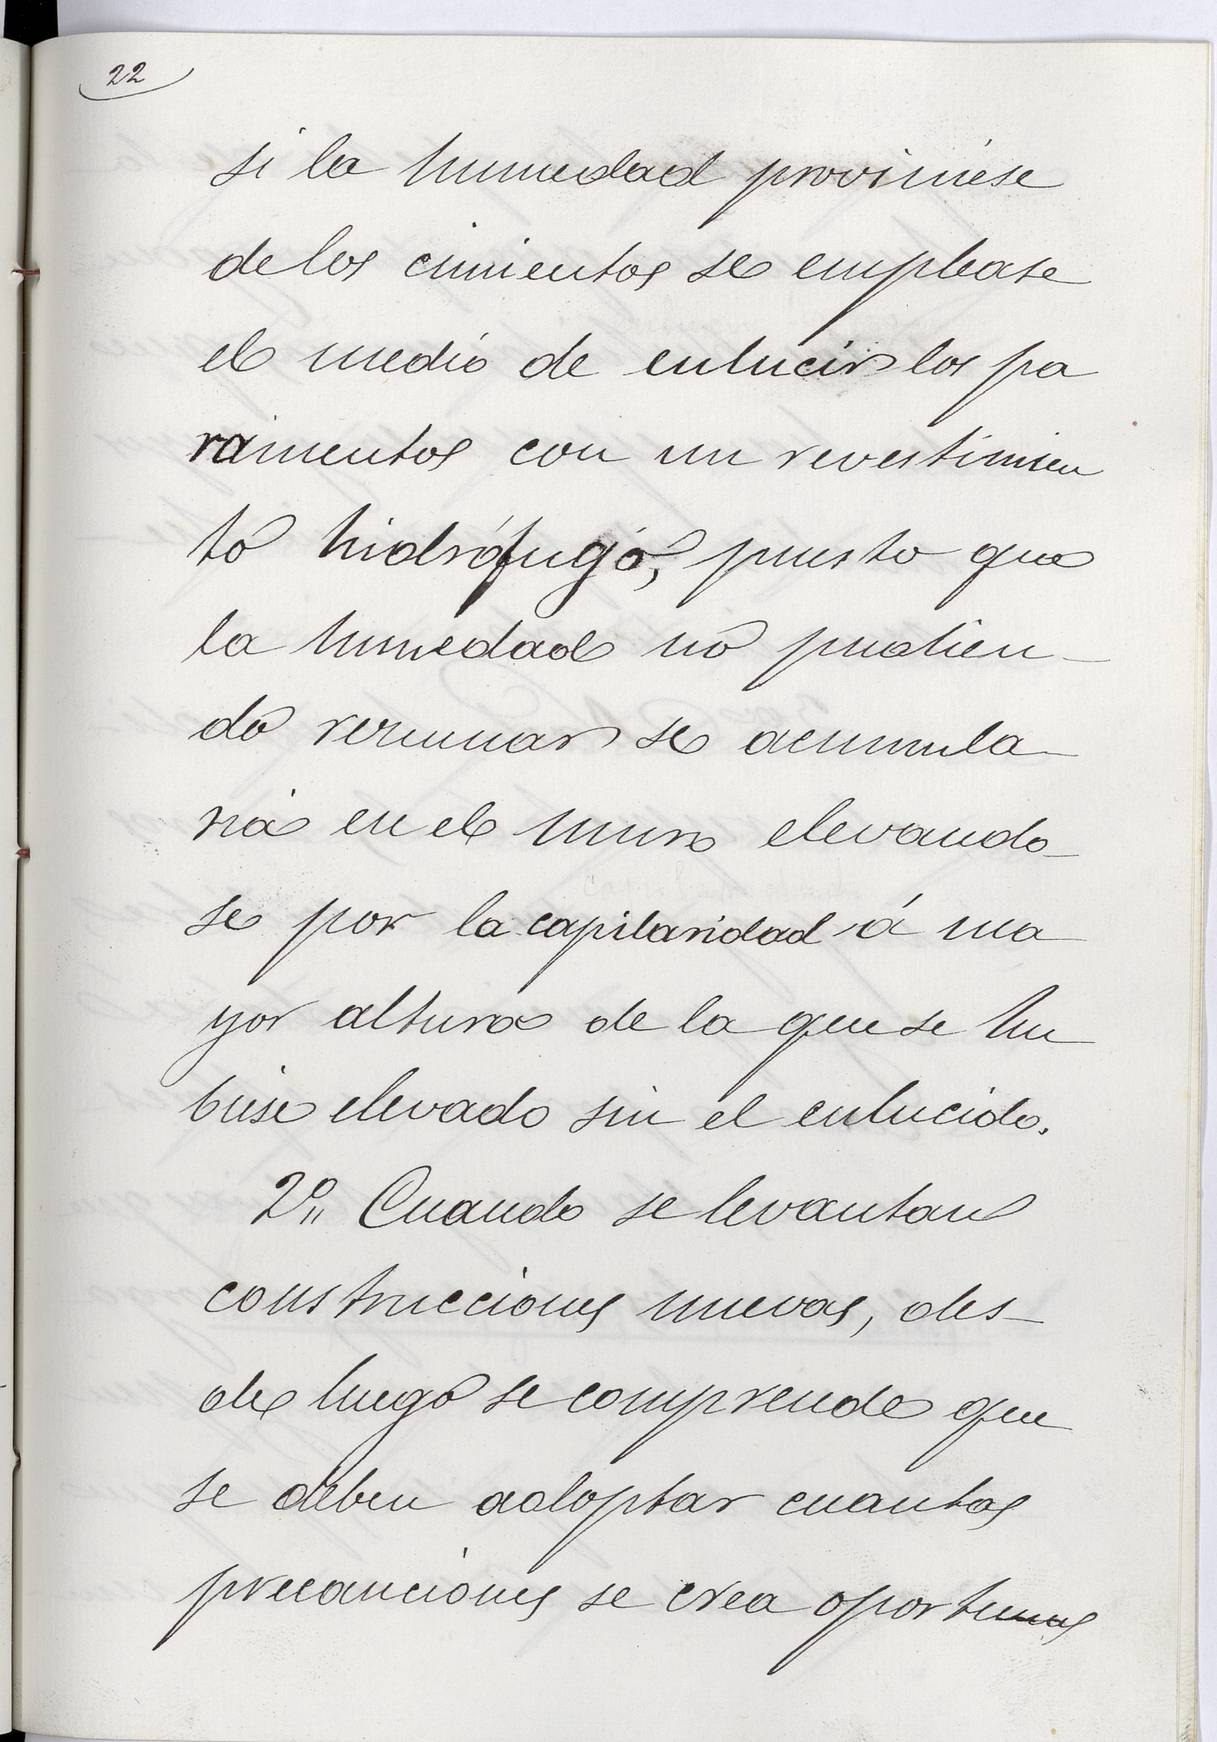 22
si la humedad proviniese
de los cimientos se emplease
el medio de enlucir los pa
ramentos con un revestimien
to hidrófugo, puesto que
la humedad no pudien-
do rezumar se acumula-
ria en el muro elevando-
se por la capilaridad á ma
yor altura de la que se hu
biese elevado sin el enlucido.
2º Cuando se levantan
construcciones nuevas, des-
de luego se comprende que
se deben adoptar cuantas
precauciones se crea oportunas